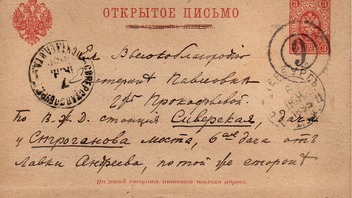 ОТКРЫТОЕ ПИСЬМО
Ея Высокоблагородію
Екатеринѣ Павловнѣ
Гжѣ Прокофьевой
По В. Ж. D. станція Сиверская, дача
у Строганова моста, 6ая дача отъ
лавки Андреева, по той же сторонѣ
На этой сторонѣ пишется только адресъ.